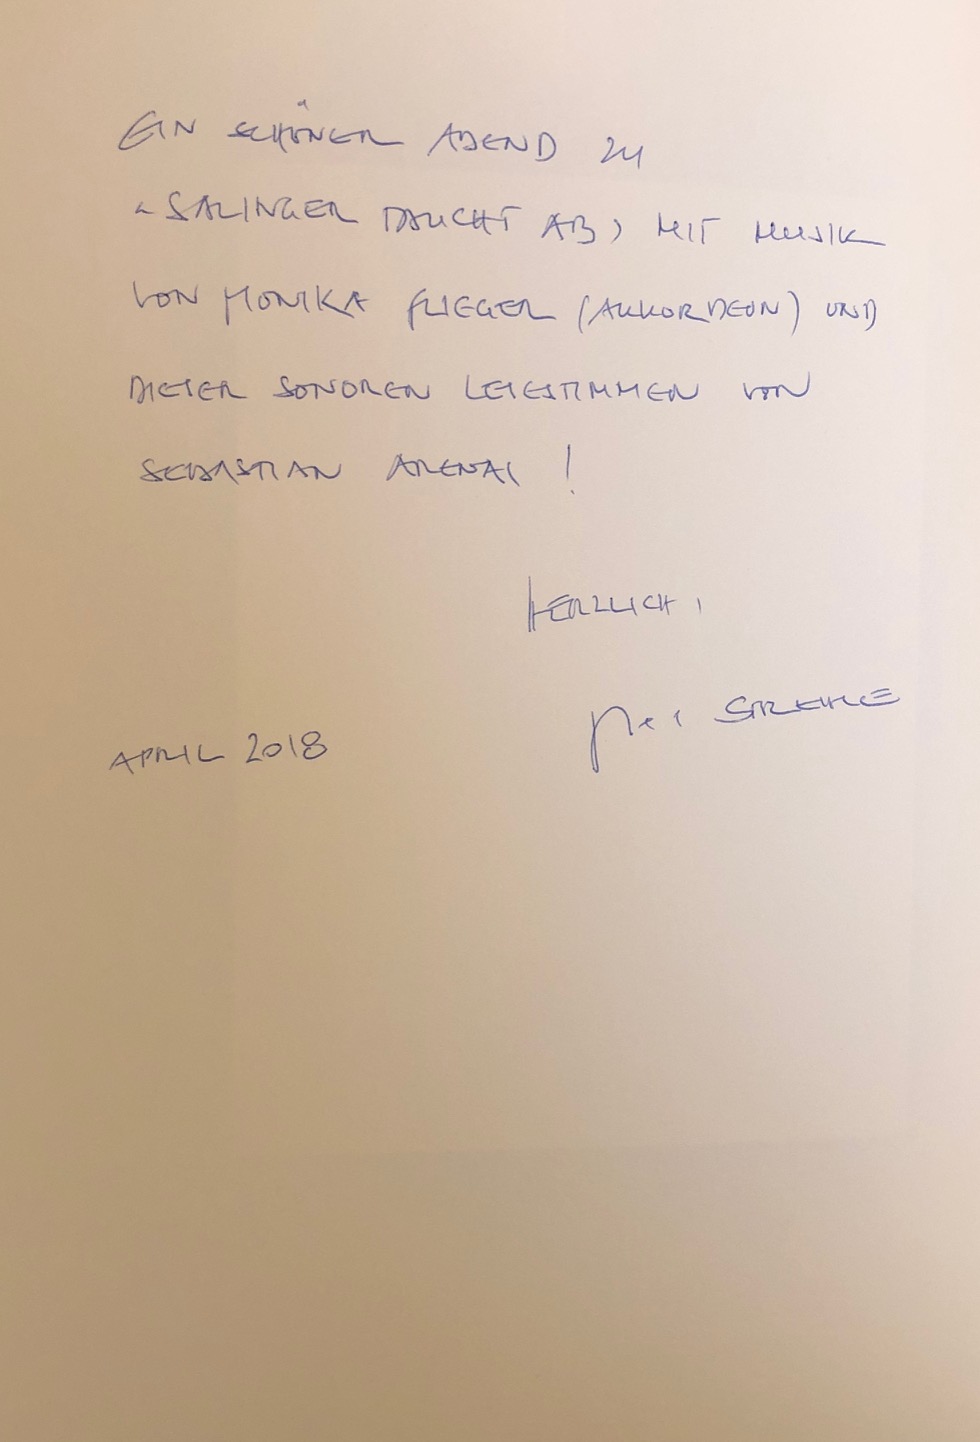 EIN SCHÖNER ABEND ZU
«SALINGER TAUCHT AB» MIT MUSIK
VON MONIKA FLIEGER (AKKORDEON) UND
DIESER SONOREN LESESTIMMEN VON
SEBASTIAN ARENAS!
HERZLICH,
STREHLE
APRIL 2018